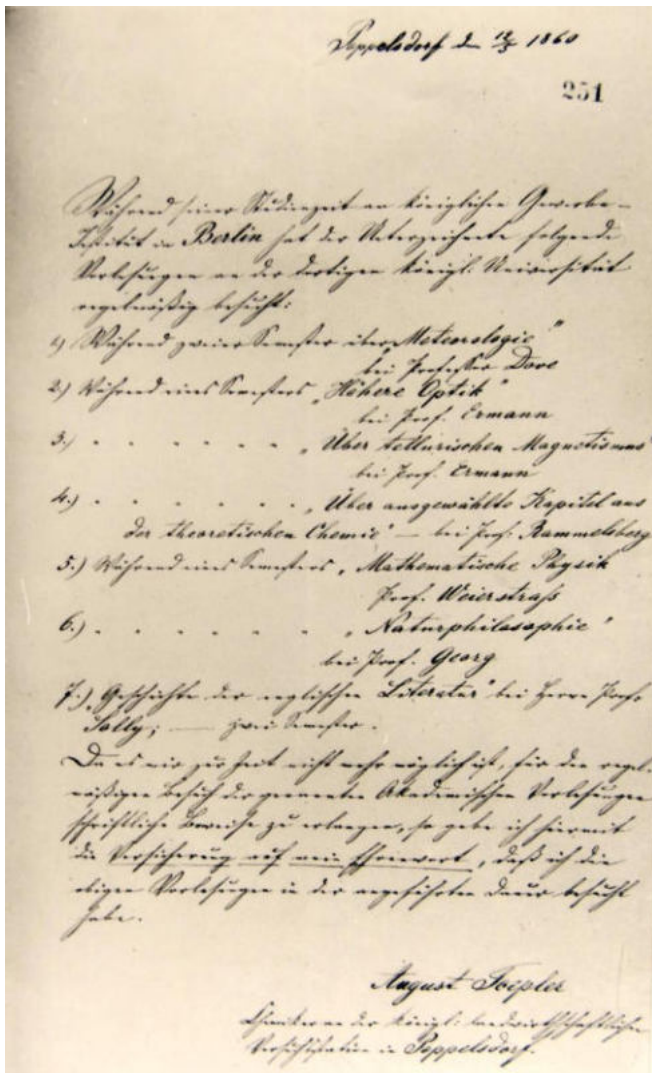 Poppelsdorf d. 12/3 1860
251
Während seiner Studienzeit am königlichen Gewerbe-
Institut in Berlin hat der Unterzeichnete folgende
Vorlesungen an der dortigen königl. Universität
regelmäßig besucht:
1.) Während zweier Semester über „Meteorologie"
bei Professor Dove
2.) Während eines Semesters „Höhere Optik"
bei Prof. Ermann
3.) " " " " " „Über tellurischen Magnetismus
bei Prof. Ermann
4.) " " " " " „Über ausgewählte Kapitel aus
der theoretischen Chemie" — bei Prof. Rammelsberg
5.) Während eines Semesters „Mathematische Physik
Prof. Weierstraß
6.) " " " " " „Naturphilosophie"
bei Prof. Georg
7.) „Geschichte der englischen Literatur" bei Herrn Prof.
Solly; — zwei Semester.
Da es mir zur Zeit nicht mehr möglich ist, für den regel-
mäßigen Besuch der genannten Akademischen Vorlesungen
schriftliche Beweise zu erlangen, so gebe ich hiermit
die Versicherung auf mein Ehrenwort, daß ich die
obigen Vorlesungen in der angeführten Dauer besucht
habe.
August Toepler
Chemiker an der königl. landwirthschaftlichen
Versuchstation in Poppelsdorf.